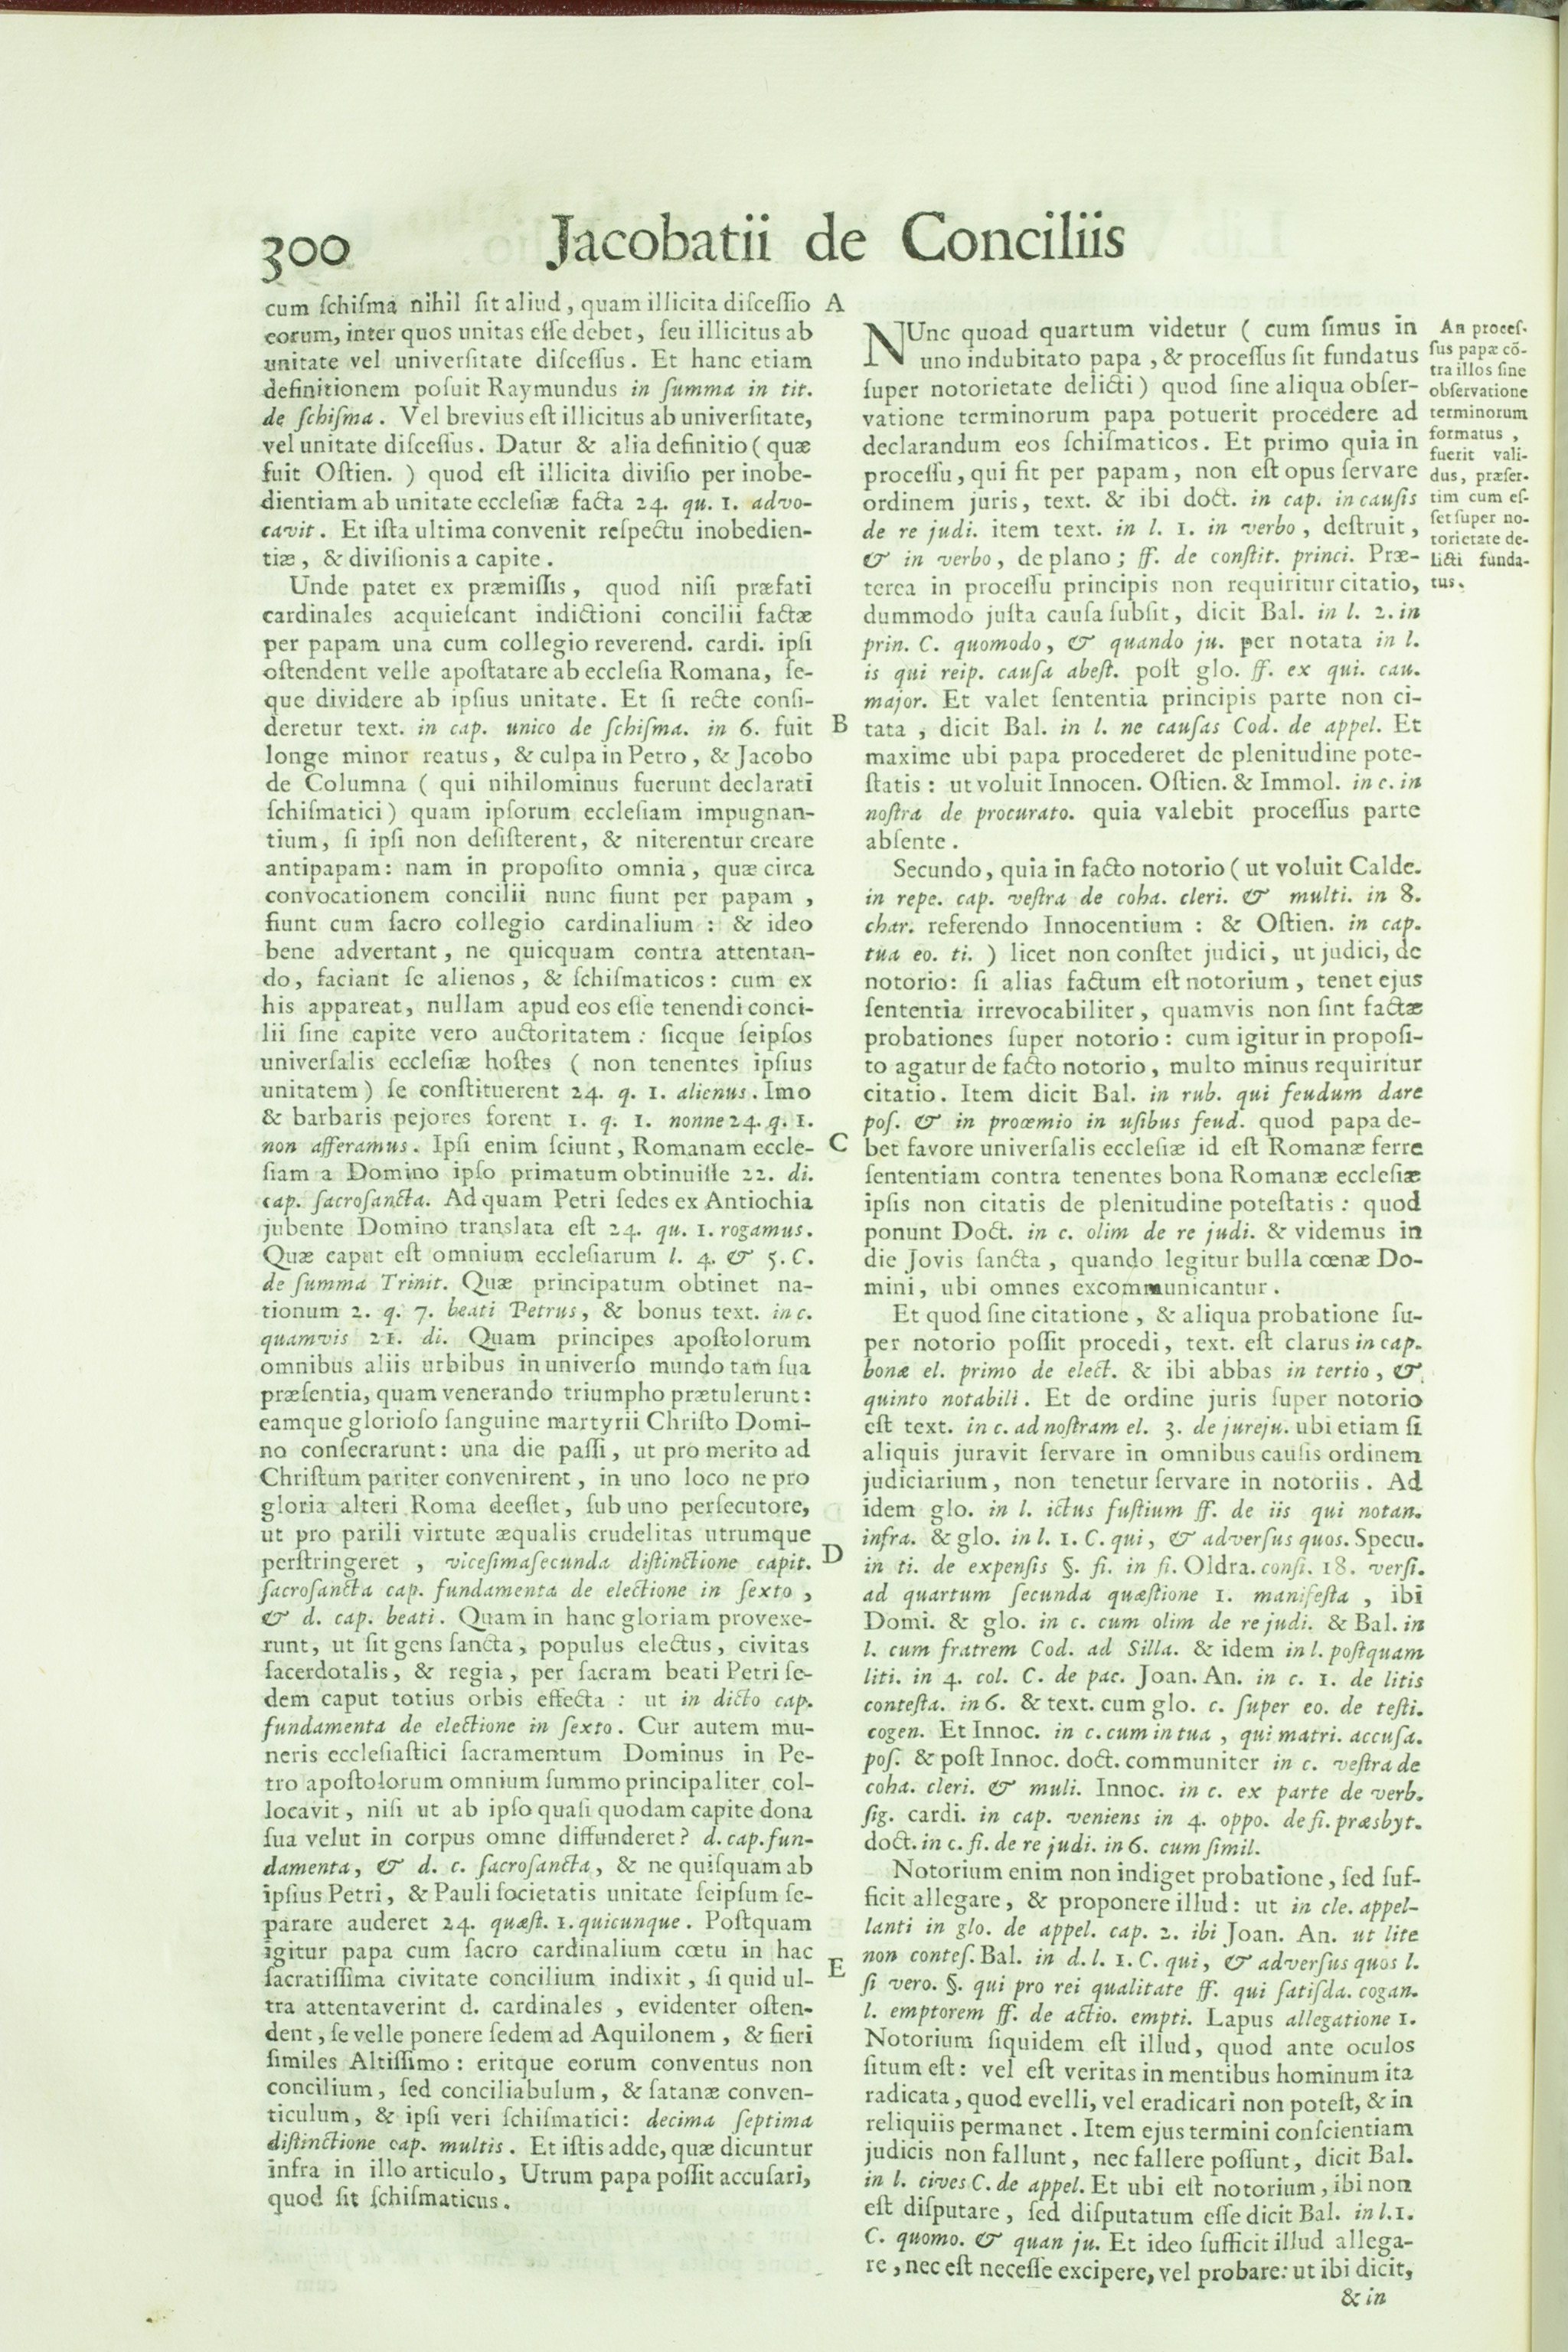 300
Jacobatii de Conciliis
cum ſchiſma nihil ſit aliud, quam illicita diſceſſio
eorum, inter quos unitas eſſe debet, ſeu illicitus ab
unitate vel univerſitate diſceſſus. Et hanc etiam
definitionem poſuit Raymundus in ſumma in tit.
de ſchiſma. Vel brevius eſt illicitus ab univerſitate,
vel unitate diſceſſus. Datur & alia definitio (quæ
fuit Oſtien.) quod eſt illicita diviſio per inobe-
dientiam ab unitate eccleſiæ facta 24. qu. 1. advo-
cavit. Et iſta ultima convenit reſpectu inobedien-
tiæ, & diviſionis a capite.
Unde patet ex præmiſſis, quod niſi præfati
cardinales acquieſcant indictioni concilii factæ
per papam una cum collegio reverend. cardi. ipſi
oſtendent velle apoſtatare ab eccleſia Romana, ſe-
que dividere ab ipſius unitate. Et ſi recte conſi-
deretur text. in cap. unico de ſchiſma. in 6. fuit
longe minor reatus, & culpa in Petro, & Jacobo
de Columna (qui nihilominus fuerunt declarati
ſchiſmatici) quam ipſorum eccleſiam impugnan-
tium, ſi ipſi non deſiſterent, & niterentur creare
antipapam: nam in propoſito omnia, quæ circa
convocationem concilii nunc fiunt per papam,
fiunt cum ſacro collegio cardinalium: & ideo
bene advertant, ne quicquam contra attentan-
do, faciant ſe alienos, & ſchiſmaticos: cum ex
his appareat, nullam apud eos eſſe tenendi conci-
lii ſine capite vero auctoritatem: ſicque ſeipſos
univerſalis eccleſiæ hoſtes (non tenentes ipſius
unitatem) ſe conſtituerent 24. q. 1. alienus. Imo
& barbaris pejores forent 1. q. 1. nonne 24. q. 1.
non afferamus. Ipſi enim ſciunt, Romanam eccle-
ſiam a Domino ipſo primatum obtinuiſſe 22. di.
cap. ſacroſancta. Ad quam Petri ſedes ex Antiochia
jubente Domino translata eſt 24. qu. 1. rogamus.
Quæ caput eſt omnium eccleſiarum l. 4. & 5. C.
de ſumma Trinit. Quæ principatum obtinet na-
tionum 2. q. 7. beati Petrus, & bonus text. in c.
quamvis 21. di. Quam principes apoſtolorum
omnibus aliis urbibus in univerſo mundo tam ſua
præſentia, quam venerando triumpho prætulerunt:
eamque glorioſo ſanguine martyrii Chriſto Domi-
no conſecrarunt: una die paſſi, ut pro merito ad
Chriſtum pariter convenirent, in uno loco ne pro
gloria alteri Roma deeſſet, ſub uno perſecutore,
ut pro parili virtute æqualis crudelitas utrumque
perſtringeret, viceſimaſecunda diſtinctione capit.
ſacroſancta cap. fundamenta de electione in ſexto,
& d. cap. beati. Quam in hanc gloriam provexe-
runt, ut ſit gens ſancta, populus electus, civitas
ſacerdotalis, & regia, per ſacram beati Petri ſe-
dem caput totius orbis effecta: ut in dicto cap.
fundamenta de electione in ſexto. Cur autem mu-
neris eccleſiaſtici ſacramentum Dominus in Pe-
tro apoſtolorum omnium ſummo principaliter col-
locavit, niſi ut ab ipſo quaſi quodam capite dona
ſua velut in corpus omne diffunderet? d. cap. fun-
damenta, & d. c. ſacroſancta, & ne quiſquam ab
ipſius Petri, & Pauli ſocietatis unitate ſeipſum ſe-
parare auderet 24. quæſt. 1. quicunque. Poſtquam
igitur papa cum ſacro cardinalium cœtu in hac
ſacratiſſima civitate concilium indixit, ſi quid ul-
tra attentaverint d. cardinales, evidenter oſten-
dent, ſe velle ponere ſedem ad Aquilonem, & fieri
ſimiles Altiſſimo: eritque eorum conventus non
concilium, ſed conciliabulum, & ſatanæ conven-
ticulum, & ipſi veri ſchiſmatici: decima ſeptima
diſtinctione cap. multis. Et iſtis adde, quæ dicuntur
infra in illo articulo, Utrum papa poſſit accuſari,
quod ſit ſchiſmaticus.
A
B
C
D
E
NUnc quoad quartum videtur (cum ſimus in
uno indubitato papa, & proceſſus ſit fundatus
ſuper notorietate delicti) quod ſine aliqua obſer-
vatione terminorum papa potuerit procedere ad
declarandum eos ſchiſmaticos. Et primo quia in
proceſſu, qui fit per papam, non eſt opus ſervare
ordinem juris, text. & ibi doct. in cap. in cauſis
de re judi. item text. in l. 1. in verbo, deſtruit,
& in verbo, de plano; ff. de conſtit. princi. Præ-
terea in proceſſu principis non requiritur citatio,
dummodo juſta cauſa ſubſit, dicit Bal. in l. 2. in
prin. C. quomodo, & quando ju. per notata in l.
is qui reip. cauſa abeſt. poſt glo. ff. ex qui. cau.
major. Et valet ſententia principis parte non ci-
tata, dicit Bal. in l. ne cauſas Cod. de appel. Et
maxime ubi papa procederet de plenitudine pote-
ſtatis: ut voluit Innocen. Oſtien. & Immol. in c. in
noſtra de procurato. quia valebit proceſſus parte
abſente.
Secundo, quia in facto notorio (ut voluit Calde.
in repe. cap. veſtra de coha. cleri. & multi. in 8.
char. referendo Innocentium: & Oſtien. in cap.
tua eo. ti.) licet non conſtet judici, ut judici, de
notorio: ſi alias factum eſt notorium, tenet ejus
ſententia irrevocabiliter, quamvis non ſint factæ
probationes ſuper notorio: cum igitur in propoſi-
to agatur de facto notorio, multo minus requiritur
citatio. Item dicit Bal. in rub. qui feudum dare
poſ. & in proœmio in uſibus feud. quod papa de-
bet favore univerſalis eccleſiæ id eſt Romanæ ferre
ſententiam contra tenentes bona Romanæ eccleſiæ
ipſis non citatis de plenitudine poteſtatis: quod
ponunt Doct. in c. olim de re judi. & videmus in
die Jovis ſancta, quando legitur bulla cœnæ Do-
mini, ubi omnes excommunicantur.
Et quod ſine citatione, & aliqua probatione ſu-
per notorio poſſit procedi, text. eſt clarus in cap.
bonæ el. primo de elect. & ibi abbas in tertio, &
quinto notabili. Et de ordine juris ſuper notorio
eſt text. in c. ad noſtram el. 3. de jureju. ubi etiam ſi
aliquis juravit ſervare in omnibus cauſis ordinem
judiciarium, non tenetur ſervare in notoriis. Ad
idem glo. in l. ictus fuſtium ff. de iis qui notan.
infra. & glo. in l. 1. C. qui, & adverſus quos. Specu.
in ti. de expenſis §. fi. in fi. Oldra. conſi. 18. verſi.
ad quartum ſecunda quæſtione 1. manifeſta, ibi
Domi. & glo. in c. cum olim de re judi. & Bal. in
l. cum fratrem Cod. ad Silla. & idem in l. poſtquam
liti. in 4. col. C. de pac. Joan. An. in c. 1. de litis
conteſta. in 6. & text. cum glo. c. ſuper eo. de teſti.
cogen. Et Innoc. in c. cum in tua, qui matri. accuſa.
poſ. & poſt Innoc. doct. communiter in c. veſtra de
coha. cleri. & muli. Innoc. in c. ex parte de verb.
ſig. cardi. in cap. veniens in 4. oppo. de fi. præsbyt.
doct. in c. fi. de re judi. in 6. cum ſimil.
Notorium enim non indiget probatione, ſed ſuf-
ficit allegare, & proponere illud: ut in cle. appel-
lanti in glo. de appel. cap. 2. ibi Joan. An. ut lite
non conteſ. Bal. in d. l. 1. C. qui, & adverſus quos l.
ſi vero. §. qui pro rei qualitate ff. qui ſatiſda. cogan.
l. emptorem ff. de actio. empti. Lapus allegatione 1.
Notorium ſiquidem eſt illud, quod ante oculos
ſitum eſt: vel eſt veritas in mentibus hominum ita
radicata, quod evelli, vel eradicari non poteſt, & in
reliquiis permanet. Item ejus termini conſcientiam
judicis non fallunt, nec fallere poſſunt, dicit Bal.
in l. cives C. de appel. Et ubi eſt notorium, ibi non
eſt diſputare, ſed diſputatum eſſe dicit Bal. in l. 1.
C. quomo. & quan ju. Et ideo ſufficit illud allega-
re, nec eſt neceſſe excipere, vel probare: ut ibi dicit,
& in
An proceſ-
ſus papæ cō-
tra illos ſine
obſervatione
terminorum
formatus,
fuerit vali-
dus, præſer-
tim cum eſ-
ſet ſuper no-
torietate de-
licti funda-
tus.